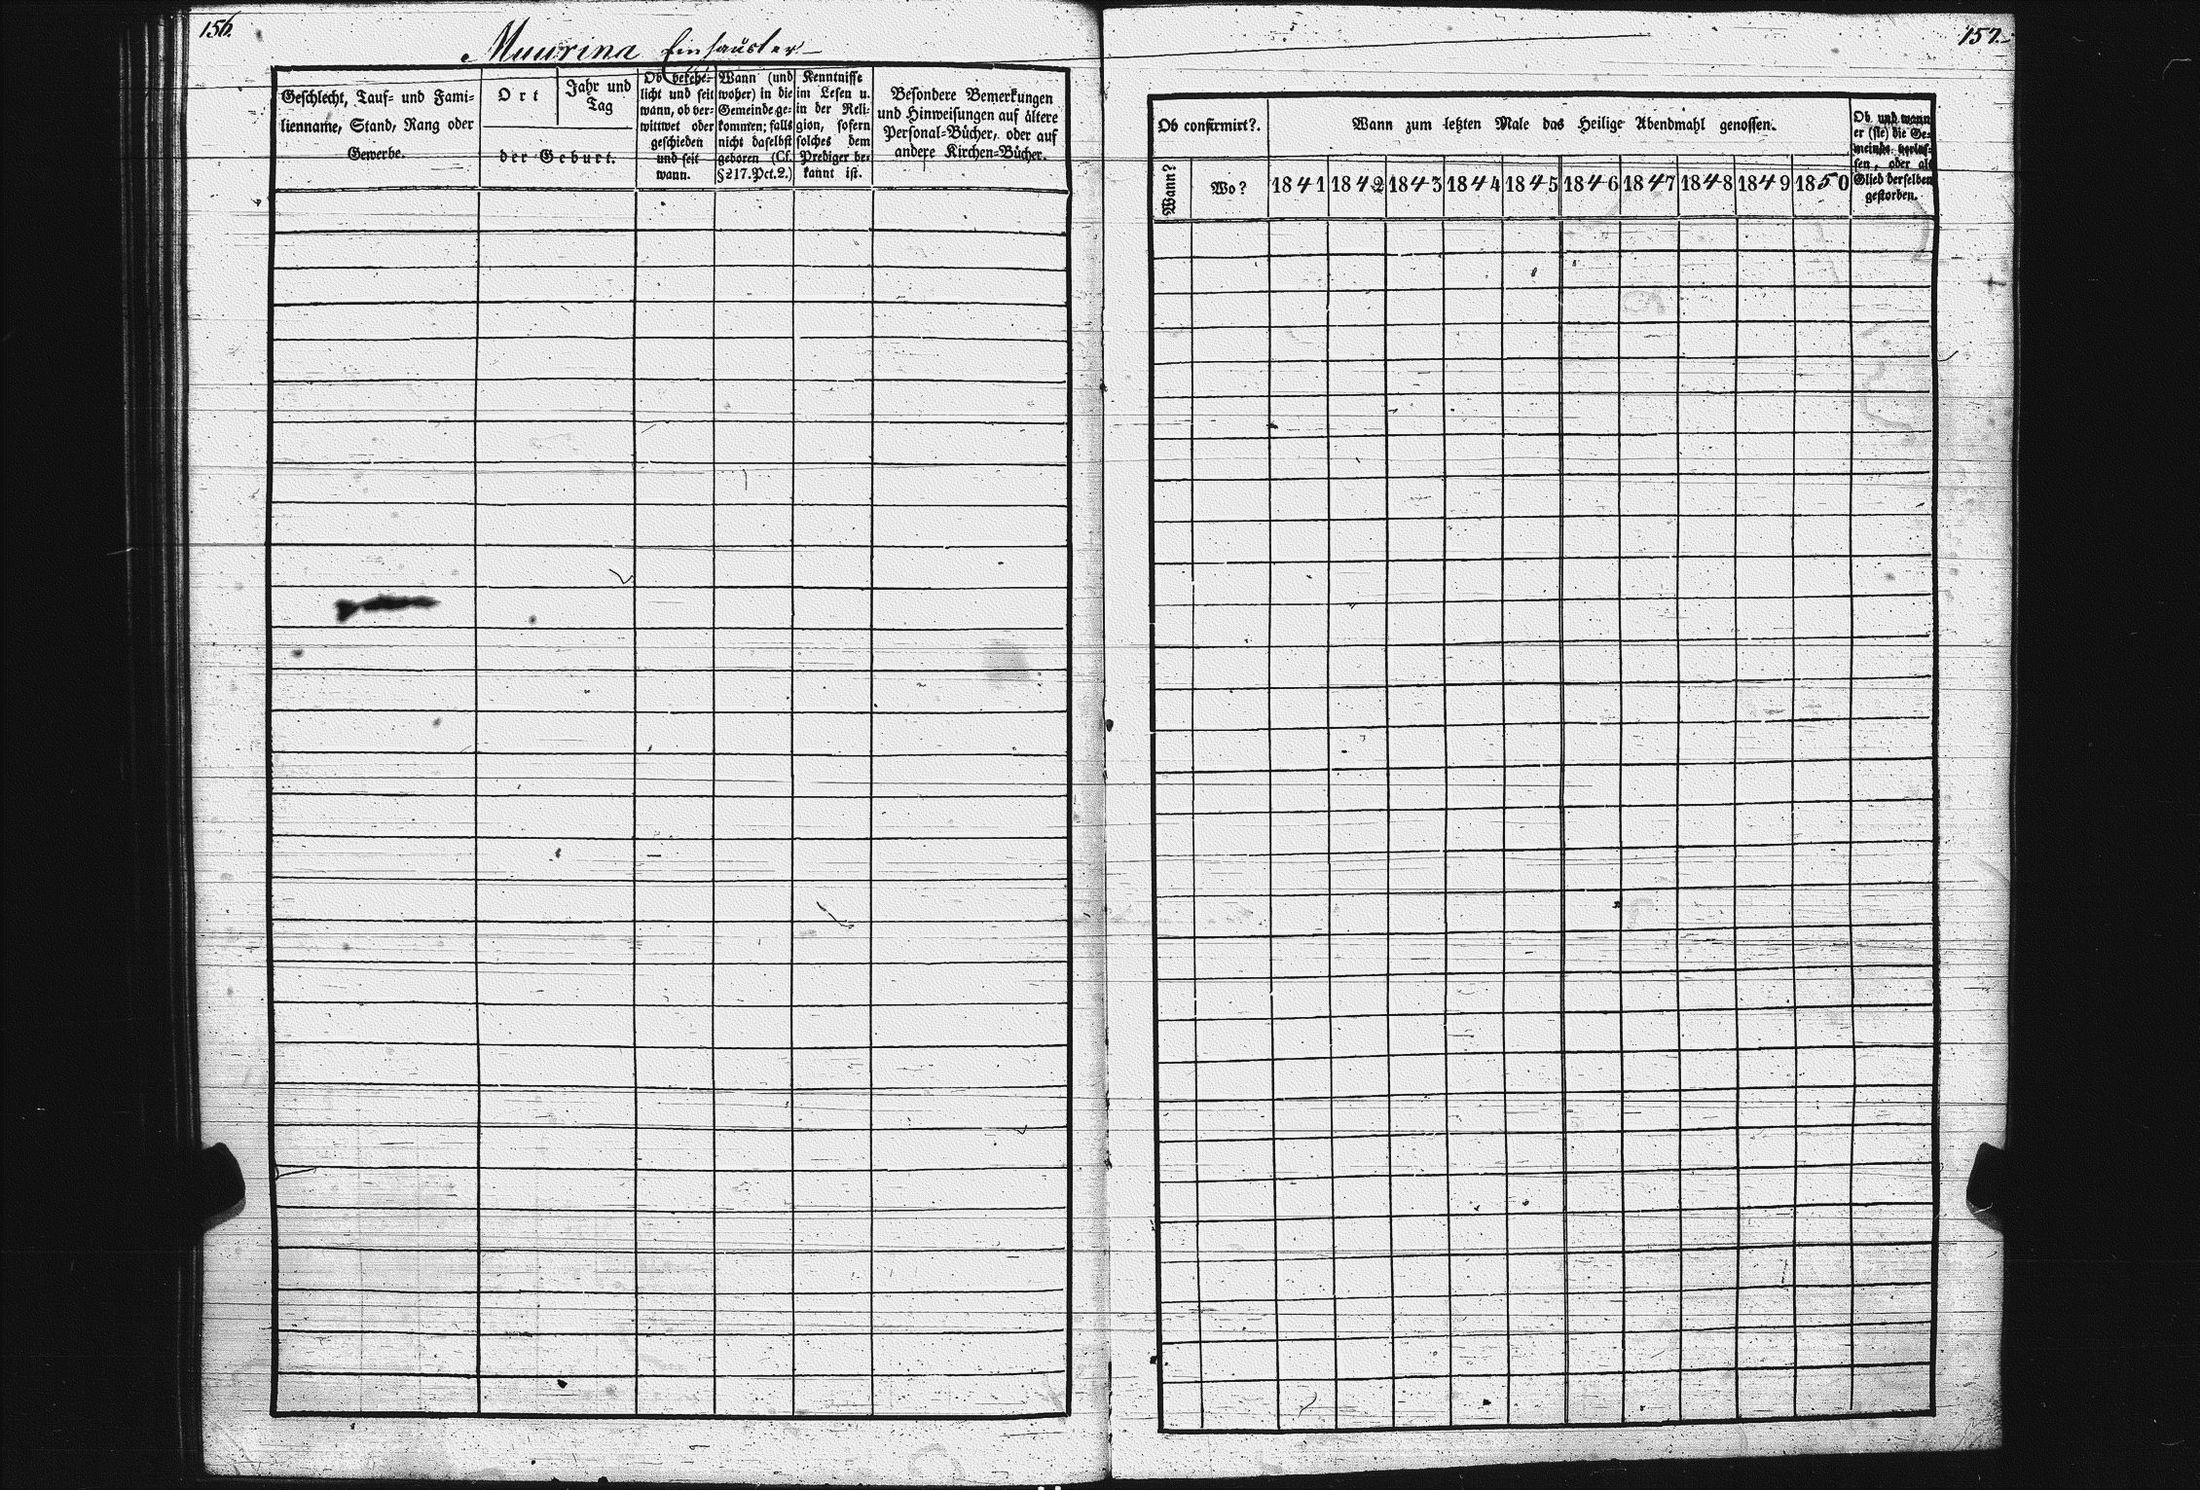 156.
Muurina Einhäusler
Geschlecht, Tauf- und Fami-
lienname, Stand, Rang oder
Gewerbe.
Ort
Jahr und
Tag
der Geburt.
Ob verehe-
licht und seit
wann, ob ver-
wittwet oder
geschieden
und seit
wann.
Wann (und
woher) in die
Gemeinde ge-
kommen; falls
nicht daselbst
geboren (Cf.
§ 217. Pct. 2.)
Kenntnisse
im Lesen u.
in der Reli-
gion, sofern
solches dem
Prediger be-
kannt ist.
Besondere Bemerkungen
und Hinweisungen auf ältere
Personal-Bücher, oder auf
andere Kirchen-Bücher.
157.
Ob confirmirt?
Wann?
Wo?
Wann zum letzten Male das Heilige Abendmahl genossen.
1841 1842 1843 1844 1845 1846 1847 1848 1849 1850
Ob und wann
er (sie) die Ge-
meinde verlas-
sen, oder als
Glied derselben
gestorben.